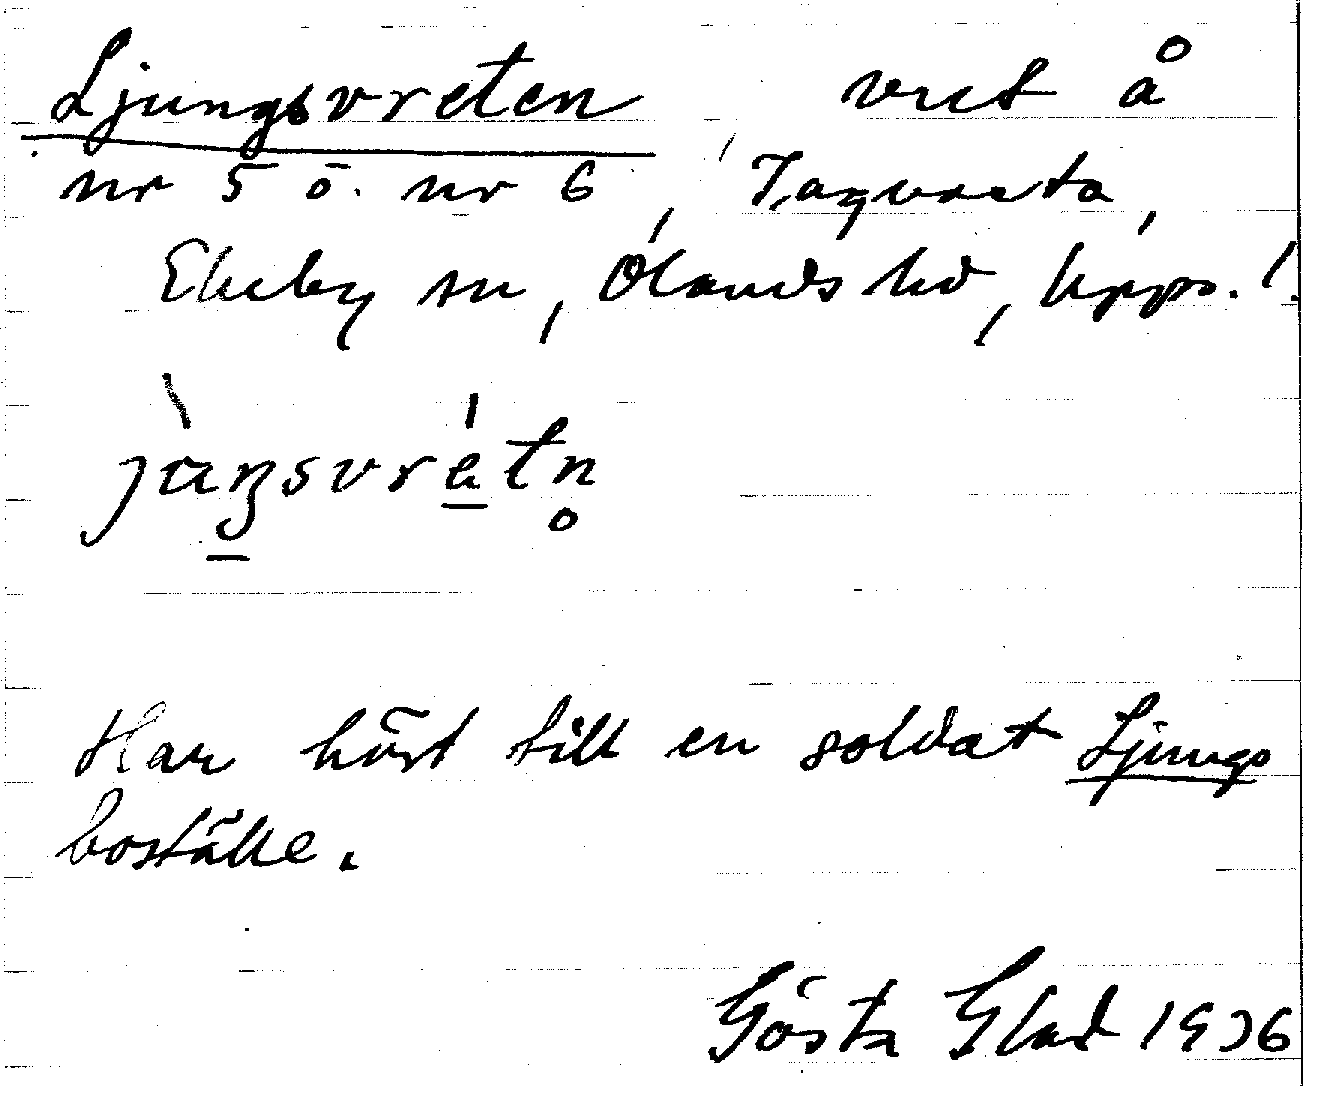 Ljungsvreten vret å
nr 5 o. nr 6, Tagvreta,
Ekeby sn, Olands hd, Upps. l.
Har hört till en soldat Ljungs
boställe.
Gösta Glad 1936